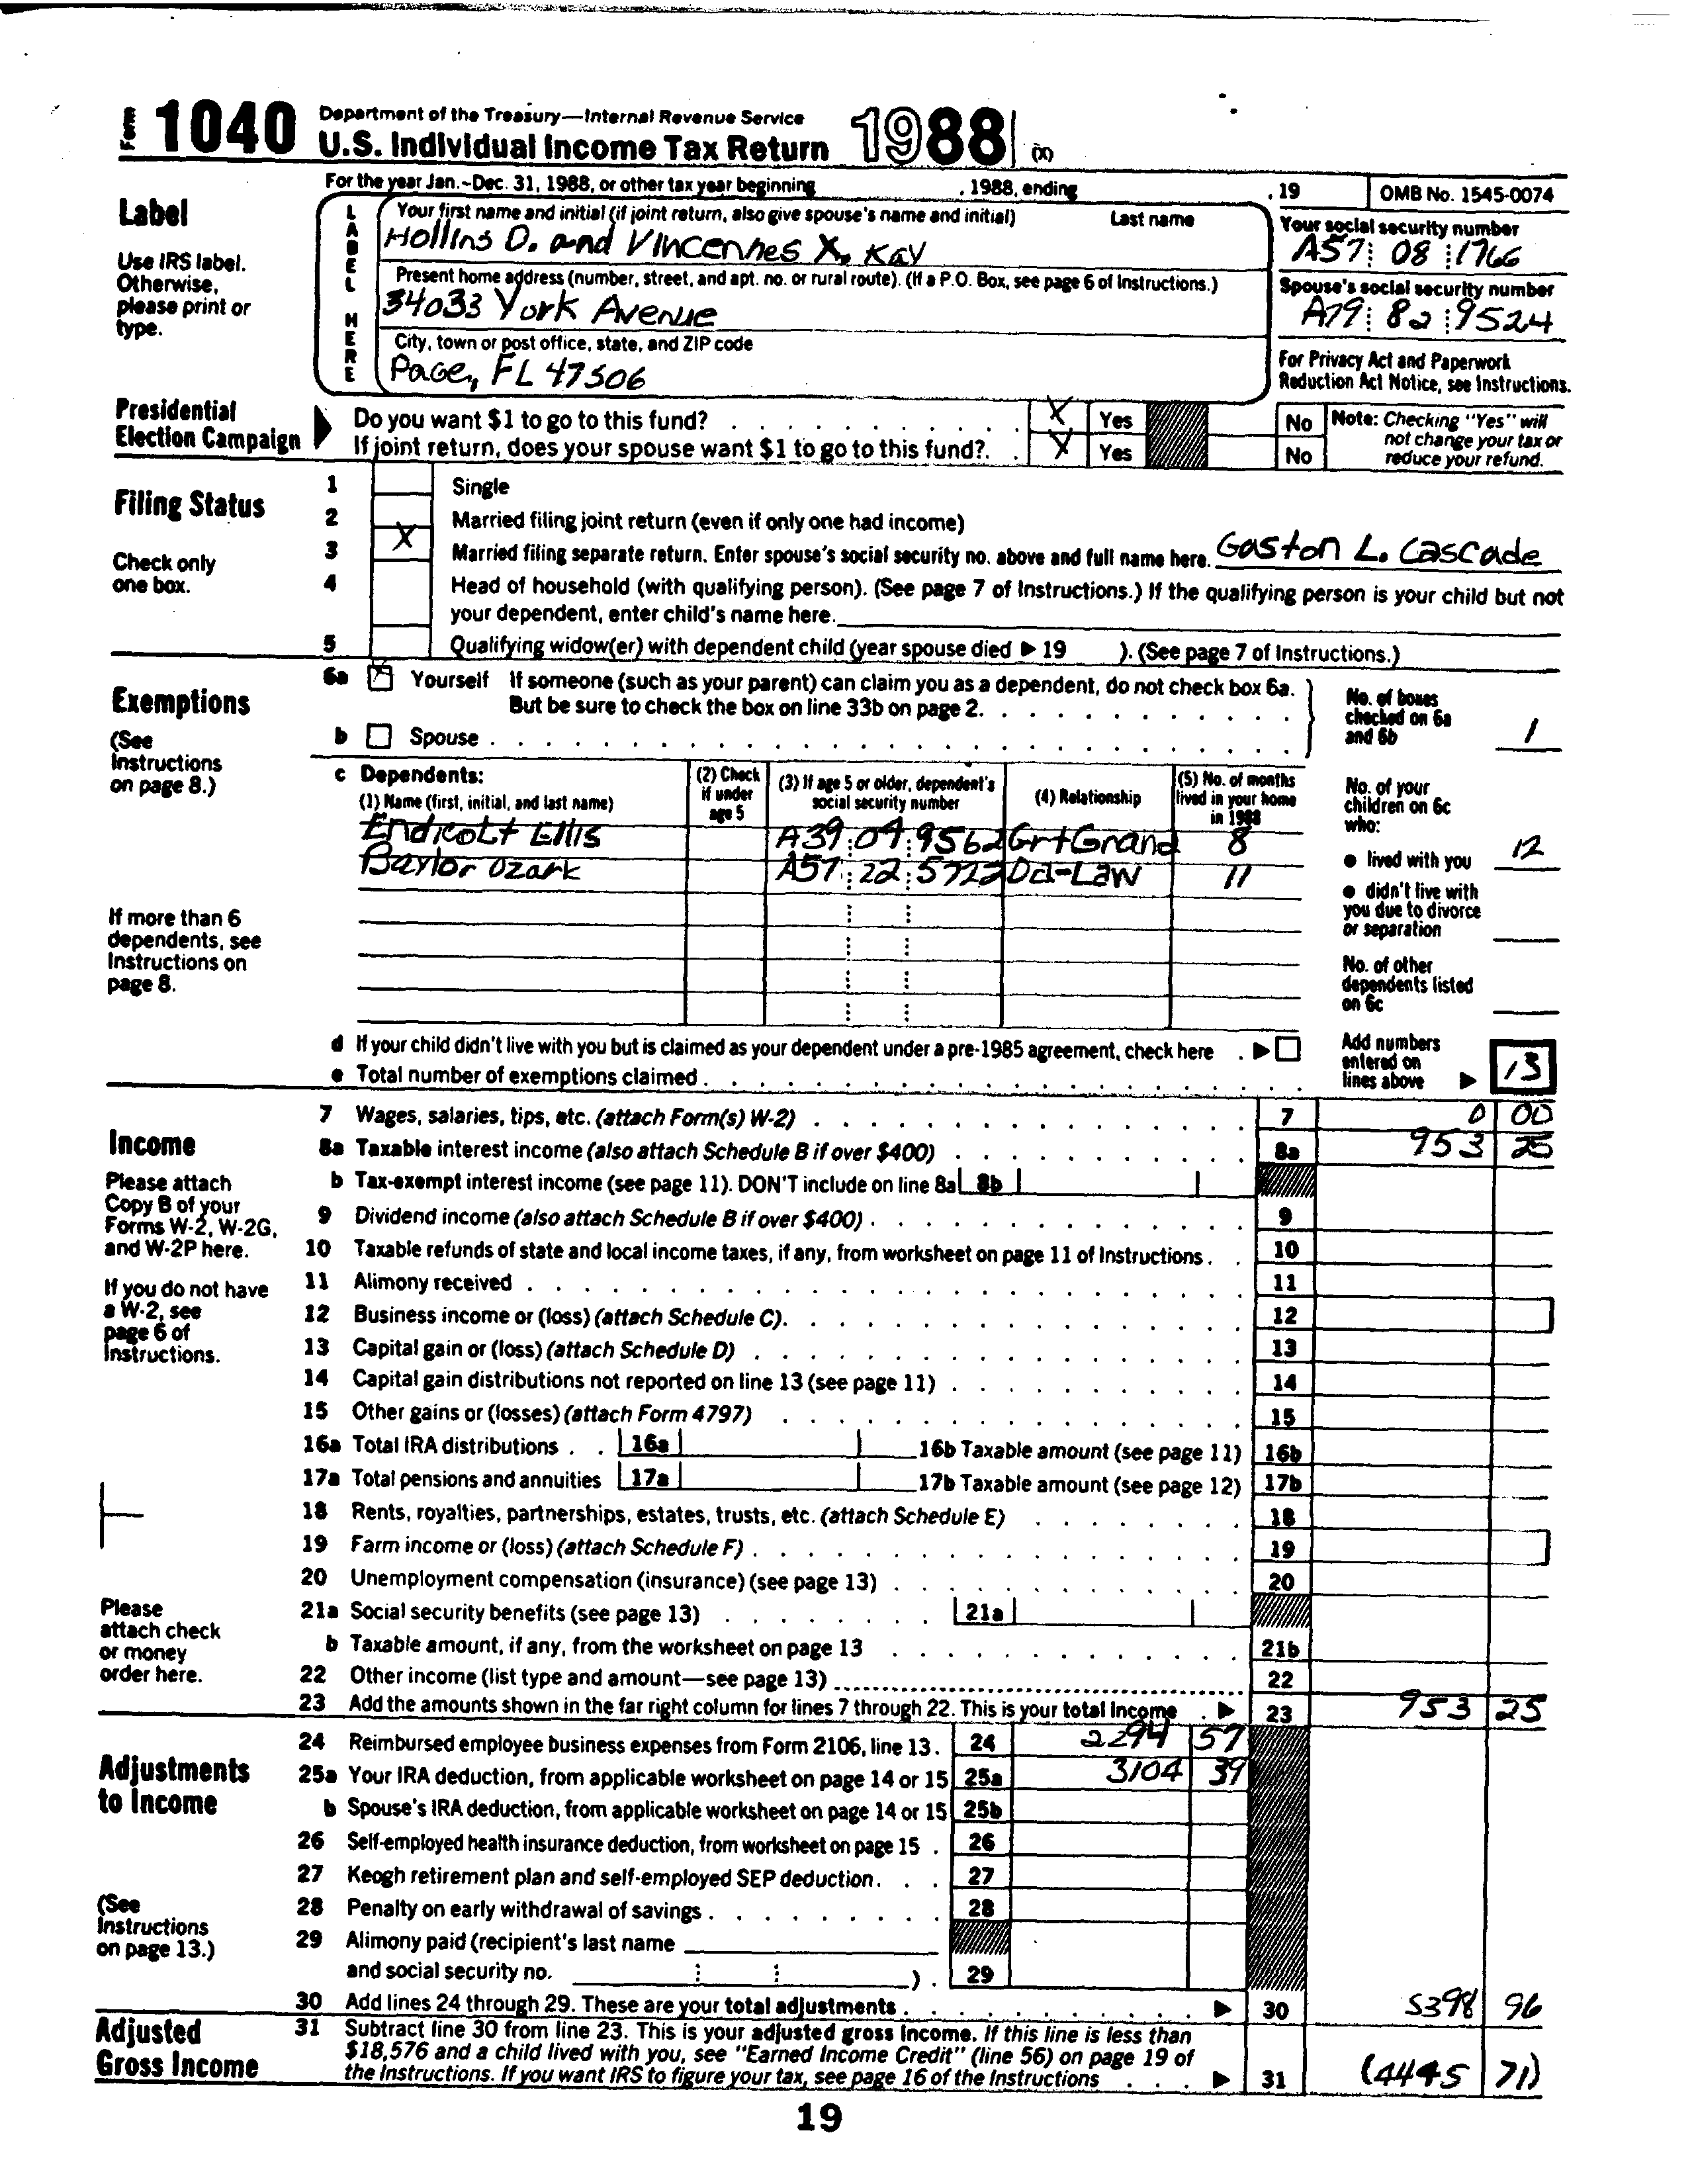 Form 1040 Department of the Treasury—Internal Revenue Service
U.S. Individual Income Tax Return 1988 (X)
For the year Jan.-Dec. 31, 1988, or other tax year beginning , 1988, ending , 19 OMB No. 1545-0074
Label
Use IRS label. Otherwise, please print or type.
LABEL HERE
Your first name and initial (if joint return, also give spouse's name and initial) Last name
Hollins D. and Vincennes X. Kay
Your social security number
A57 08 1766
Present home address (number, street, and apt. no. or rural route). (If a P.O. Box, see page 6 of Instructions.)
34033 York Avenue
Spouse's social security number
A79 82 9524
City, town or post office, state, and ZIP code
Page, FL 47506
For Privacy Act and Paperwork Reduction Act Notice, see Instructions.
Presidential Election Campaign
Do you want $1 to go to this fund? X Yes No
If joint return, does your spouse want $1 to go to this fund? X Yes No
Note: Checking "Yes" will not change your tax or reduce your refund.
Filing Status
Check only one box.
1 Single
2 Married filing joint return (even if only one had income)
3 X Married filing separate return. Enter spouse's social security no. above and full name here. Gaston L. Cascade
4 Head of household (with qualifying person). (See page 7 of Instructions.) If the qualifying person is your child but not
your dependent, enter child's name here.
5 Qualifying widow(er) with dependent child (year spouse died ▶ 19 ). (See page 7 of Instructions.)
Exemptions
(See Instructions on page 8.)
6a X Yourself If someone (such as your parent) can claim you as a dependent, do not check box 6a.
But be sure to check the box on line 33b on page 2.
b Spouse
No. of boxes checked on 6a and 6b 1
c Dependents:
(1) Name (first, initial, and last name) (2) Check if under age 5 (3) If age 5 or older, dependent's social security number (4) Relationship (5) No. of months lived in your home in 1988
Endicott Ellis A39 09 9562 GrtGrand 8
Baylor Ozark A57 22 5722 Dd-Law 11
No. of your children on 6c who:
● lived with you 12
● didn't live with you due to divorce or separation
No. of other dependents listed on 6c
If more than 6 dependents, see Instructions on page 8.
d If your child didn't live with you but is claimed as your dependent under a pre-1985 agreement, check here ▶
e Total number of exemptions claimed
Add numbers entered on lines above ▶ 13
Income
Please attach Copy B of your Forms W-2, W-2G, and W-2P here.
If you do not have a W-2, see page 6 of Instructions.
Please attach check or money order here.
7 Wages, salaries, tips, etc. (attach Form(s) W-2) 7 0 00
8a Taxable interest income (also attach Schedule B if over $400) 8a 953 25
b Tax-exempt interest income (see page 11). DON'T include on line 8a 8b
9 Dividend income (also attach Schedule B if over $400) 9
10 Taxable refunds of state and local income taxes, if any, from worksheet on page 11 of Instructions 10
11 Alimony received 11
12 Business income or (loss) (attach Schedule C) 12
13 Capital gain or (loss) (attach Schedule D) 13
14 Capital gain distributions not reported on line 13 (see page 11) 14
15 Other gains or (losses) (attach Form 4797) 15
16a Total IRA distributions 16a 16b Taxable amount (see page 11) 16b
17a Total pensions and annuities 17a 17b Taxable amount (see page 12) 17b
18 Rents, royalties, partnerships, estates, trusts, etc. (attach Schedule E) 18
19 Farm income or (loss) (attach Schedule F) 19
20 Unemployment compensation (insurance) (see page 13) 20
21a Social security benefits (see page 13) 21a
b Taxable amount, if any, from the worksheet on page 13 21b
22 Other income (list type and amount—see page 13) 22
23 Add the amounts shown in the far right column for lines 7 through 22. This is your total income ▶ 23 953 25
Adjustments to Income
(See Instructions on page 13.)
24 Reimbursed employee business expenses from Form 2106, line 13. 24 2294 57
25a Your IRA deduction, from applicable worksheet on page 14 or 15 25a 3104 39
b Spouse's IRA deduction, from applicable worksheet on page 14 or 15 25b
26 Self-employed health insurance deduction, from worksheet on page 15 26
27 Keogh retirement plan and self-employed SEP deduction 27
28 Penalty on early withdrawal of savings 28
29 Alimony paid (recipient's last name
and social security no. ) 29
30 Add lines 24 through 29. These are your total adjustments ▶ 30 5398 96
Adjusted Gross Income
31 Subtract line 30 from line 23. This is your adjusted gross income. If this line is less than
$18,576 and a child lived with you, see "Earned Income Credit" (line 56) on page 19 of
the Instructions. If you want IRS to figure your tax, see page 16 of the Instructions ▶ 31 (4445 71)
19